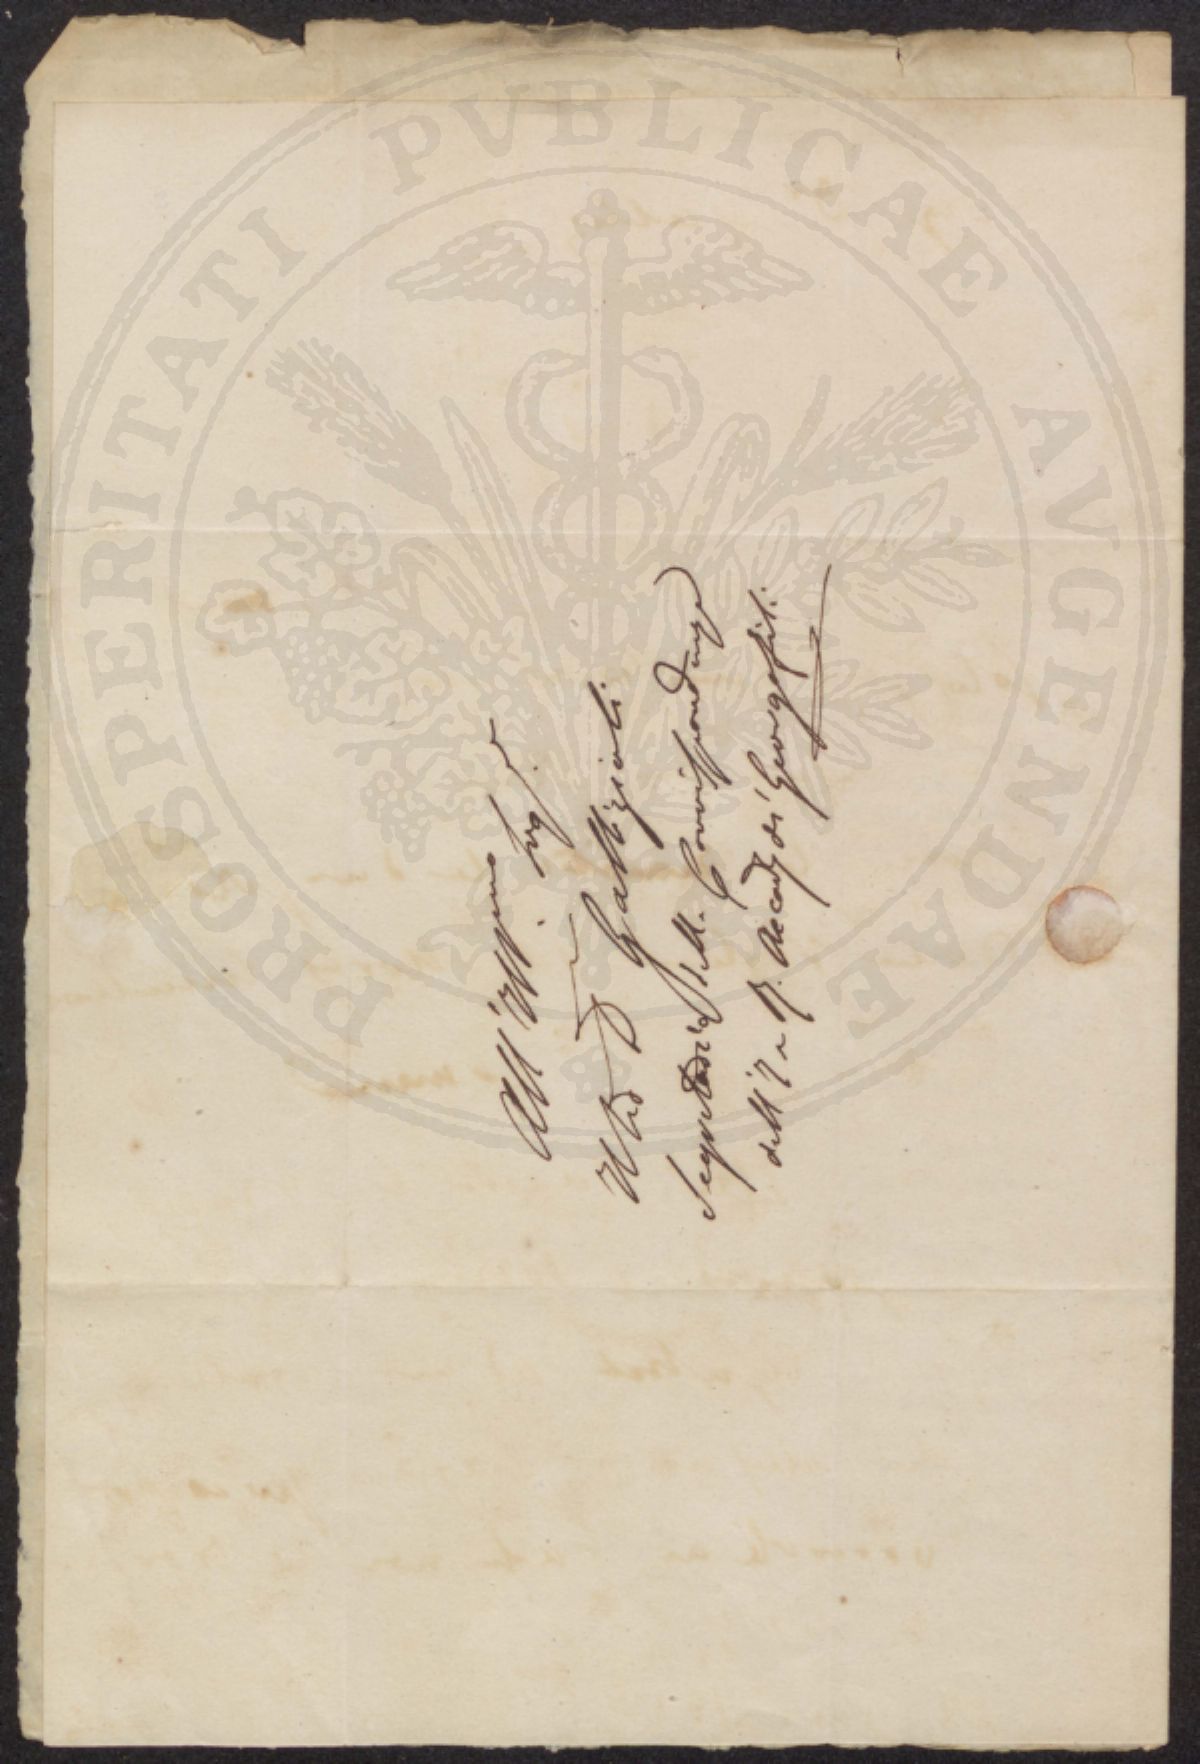 PROSPERITATI PVBLICAE AVGENDAE
All' Ill.mo Sig.r
Gallizioli
Segretario dell. Corrispondenze
dell' I. e R. Accad. dei Georgofili.